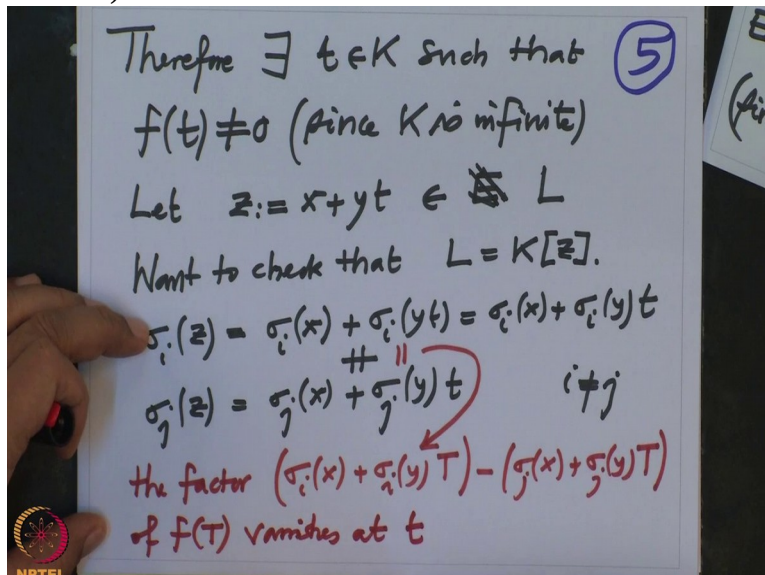 Therefore ∃ t∈K such that
⑤
f(t) ≠ 0 (since K is infinite)
Let z := x+yt ∈ L
Want to check that L = K[z].
σᵢ(z) = σᵢ(x) + σᵢ(yt) = σᵢ(x) + σᵢ(y)t
≠ ||
σⱼ(z) = σⱼ(x) + σⱼ(y)t i≠j
the factor (σᵢ(x) + σᵢ(y)T) − (σⱼ(x) + σⱼ(y)T)
of f(T) vanishes at t
NPTEL